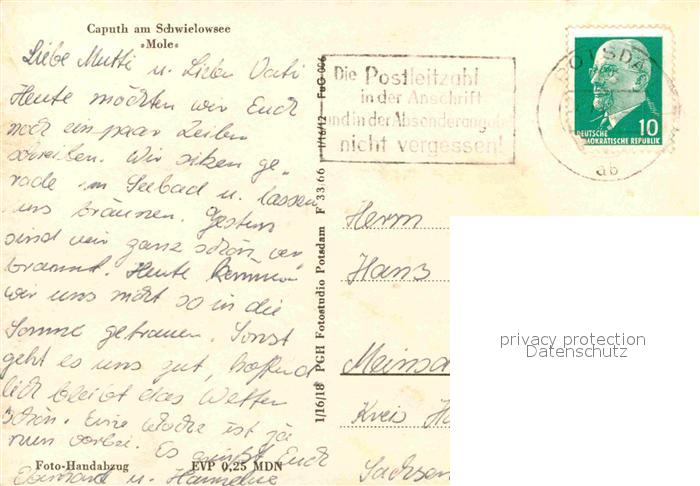 Caputh am Schwielowsee
»Mole«
Liebe Mutti u. Lieber Vati
Heute möchten wir Euch
noch ein paar Zeilen
schreiben. Wir sitzen ge„
rade im Seebad u. lassen
uns bräunen. Gestern
sind wir ganz schön ver
brannt. Heute können
wir uns nicht so in die
Sonne getrauen. Sonst
geht es uns gut, hoffend
lich bleibt das Wetter
schön. Eine Woche ist ja
nun vorbei. Es grüßt Euch
Eberhard u. Hannelore
Foto-Handabzug EVP 0,25 MDN
1/16/18 PGH Fotostudio Potsdam F 33.66 1/16/12 — FuG 006
Die Postleitzahl
in der Anschrift
und in der Absenderangabe
nicht vergessen!
POTSDA
ab
10
DEUTSCHE
DEMOKRATISCHE REPUBLIK
Herrn
Hans
privacy protection
Datenschutz
Meinsd
Kreis Ho
Sachsen